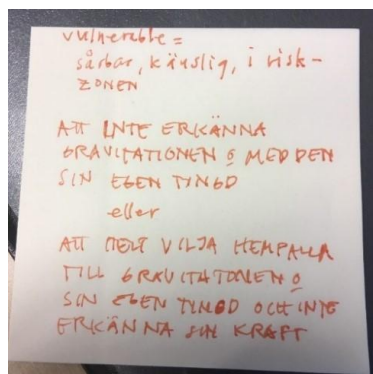 vulnerable =
sårbar, känslig, i risk-
zonen
ATT INTE ERKÄNNA
GRAVITATIONEN o MED DEN
SIN EGEN TYNGD
eller
ATT HELT VILJA HEMFALLA
TILL GRAVITATIONEN o
SIN EGEN TYNGD OCH INTE
ERKÄNNA SIN KRAFT